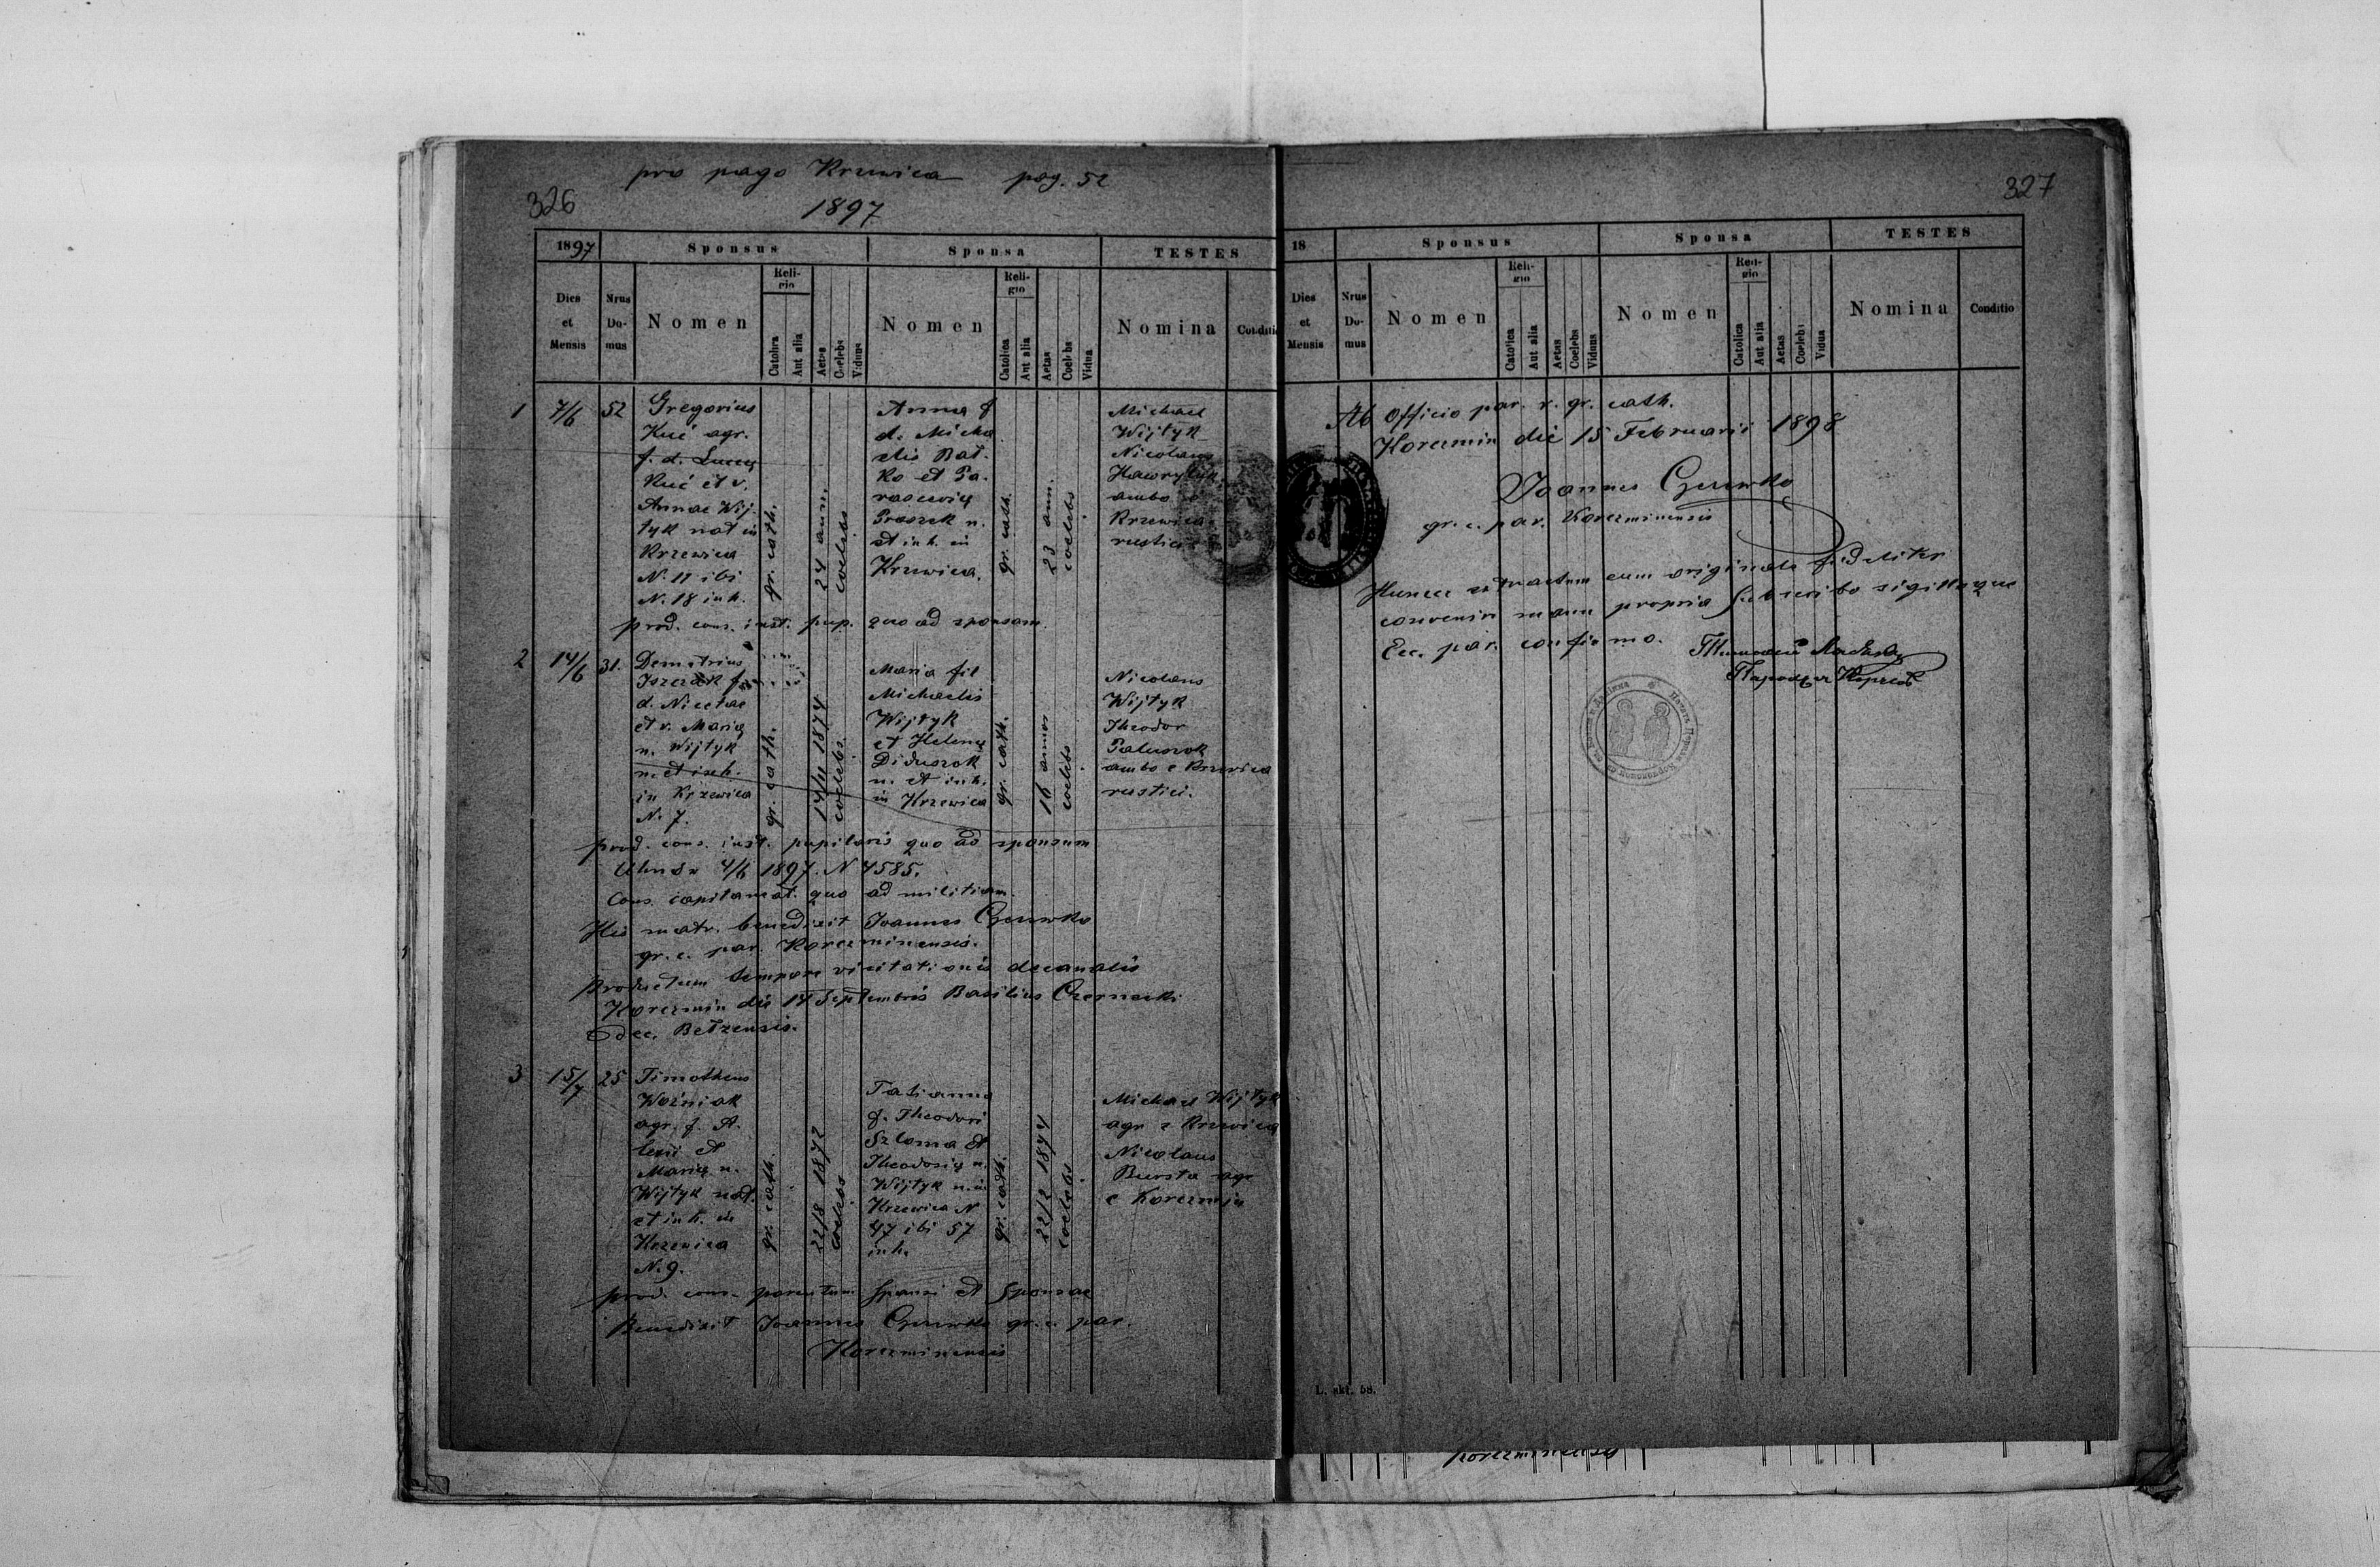 pro pago Krzewica pag. 52
326
1897
1897
Sponsus
Sponsa
TESTES
Dies et Mensis
Nrus Domus
Nomen
Religio
Catolica
Aut alia
Aetas
Coelebs
Viduus
Nomen
Religio
Catolica
Aut alia
Aetas
Coelebs
Vidua
Nomina
Conditio
1
7/6
52
Gregorius
Kuć agr.
f. d. Lucae
Kuć et v.
Annae Wij-
tyk nat in
Krzewica
N. 11 ibi
N. 18 inh.
gr. cath.
24 ann.
coelebs
Anna f
d. Micha
elis Bat-
ko et Pa-
rascevia
Proszek n.
et inh. in
Krzewica.
gr. cath.
23 ann.
coelebs
Michael
Wijtyk
Nicolaus
Hawryluk
ambo
Krzewica
rustici
prod. cons. inst. pup. quo ad sponsam.
2
14/6
31.
Demetrius
d. Nicetae
et v. Maria
n. Wijtyk
n. et inh.
in Krzewica
N. 7.
gr. cath.
14/11 1874
coelebs.
Maria fil
Michaelis
Wijtyk
et Helena
Diduszok
n. et inh.
in Krzewica
gr. cath.
16 annos
coelebs
Nicolaus
Wijtyk
Theodor
Paluszok
ambo e Krzewica
rustici.
prod. cons. inst. pupilaris quo ad sponsum
Uhnów 4/6 1897. N 4585.
Cons. capitaneat. quo ad militiam.
His matr. benedixit Joannes Czerewko
gr. c. par. Korczminensis.
Productum tempore visitationis decanalis
Korczmin die 14 Septembris Basilius Czernecki
dec. Bełzensis.
3
15/7
25
Timotheus
Woźniak
agr. f. A-
lexii et
Maria n.
Wijtyk nat.
et inh. in
Krzewica
N. 9.
gr. cath.
22/8 1872
coelebs
Tatianna
f. Theodori
Szloma et
Theodosia n.
Wijtyk n. in
Krzewica N
47 ibi 57
inh.
gr. cath.
22/2 1874
coelebs
Michael Wijtyk
agr. e Krzewica
Nicolaus
Bursta agr
e Korczmin
prod. cons. parentum sponsi et sponsae
Benedixit Joannes Czerewko gr. c. par.
Korczminensis
327
18
Sponsus
Sponsa
TESTES
Dies et Mensis
Nrus Domus
Nomen
Religio
Catolica
Aut alia
Aetas
Coelebs
Viduus
Nomen
Religio
Catolica
Aut alia
Aetas
Coelebs
Vidua
Nomina
Conditio
Ab officio par. r. gr. cath.
Korczmin die 15 Februarii 1898
Joannes Czerewko
gr. c. par. Korczminensis
Hunce extractum cum originale fideliter
convenire manu propria subscribo sigilloque
Ecc. par. confirmo.
L. akt. 58.
Korczminensis